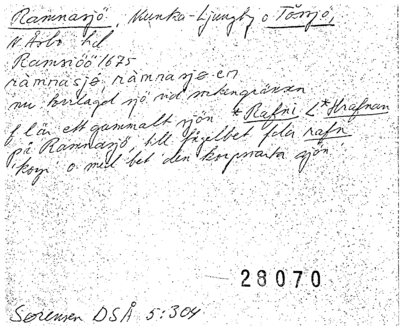 Ramnasjö, Munka-Ljungby o Tåssjö,
N Åsbo hd
Ramsiöö 1675
ràmnasjø, ràmnasjø en
nu torrlagd sjö vid sockengränsen
f lär ett gammalt sjön *Rafni < *Hrafnan
på Ramnasjö, till fågelbet fda rafn
'korp' o med bet den korpsvarta sjön
28070
Sørensen DSÅ 5:304